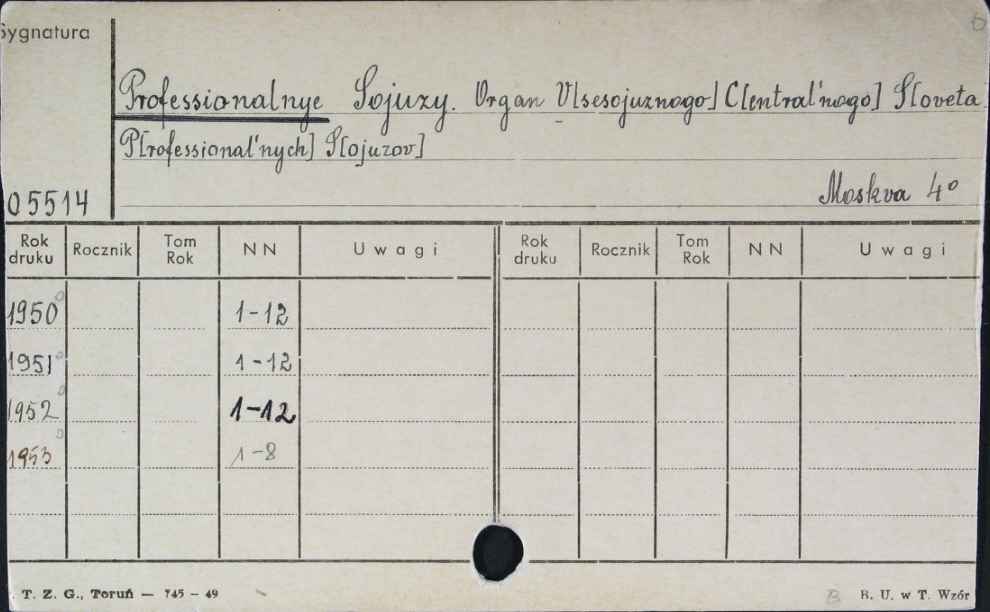 Sygnatura
Professionalnye Sojuzy. Organ V[sesojuznogo] C[entral'nogo] S[oveta
P[rofessional'nych] S[ojuzov]
05514
Moskva 4º
Rok druku Rocznik Tom Rok NN Uwagi Rok druku Rocznik Tom Rok NN Uwagi
1950 1-12
1951 1-12
1952 1-12
1953 1-8
T. Z. G., Toruń — 745 — 49
B. U. w T. Wzór